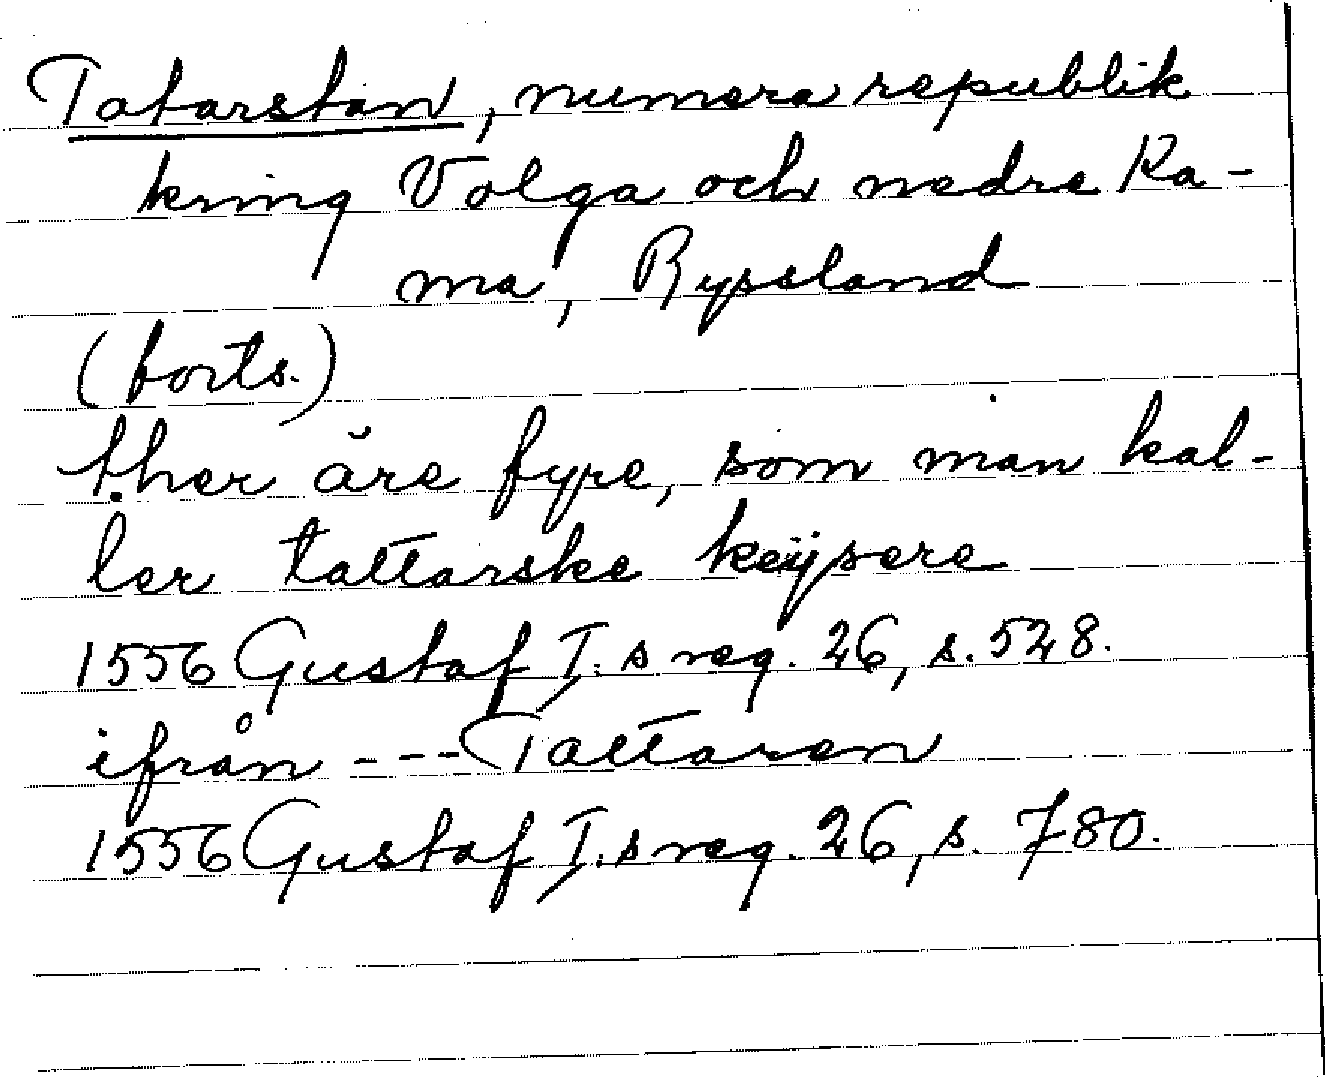 Tatarstan, numera republik
kring Volga och nedre Ka-
ma, Ryssland
(forts.)
ther äre fyre, som man kal-
ler tattarske keÿsere
1556 Gustaf I:s reg. 26, s. 528.
ifrån --- Tattaren
1556 Gustaf I:s reg. 26, s. 780.